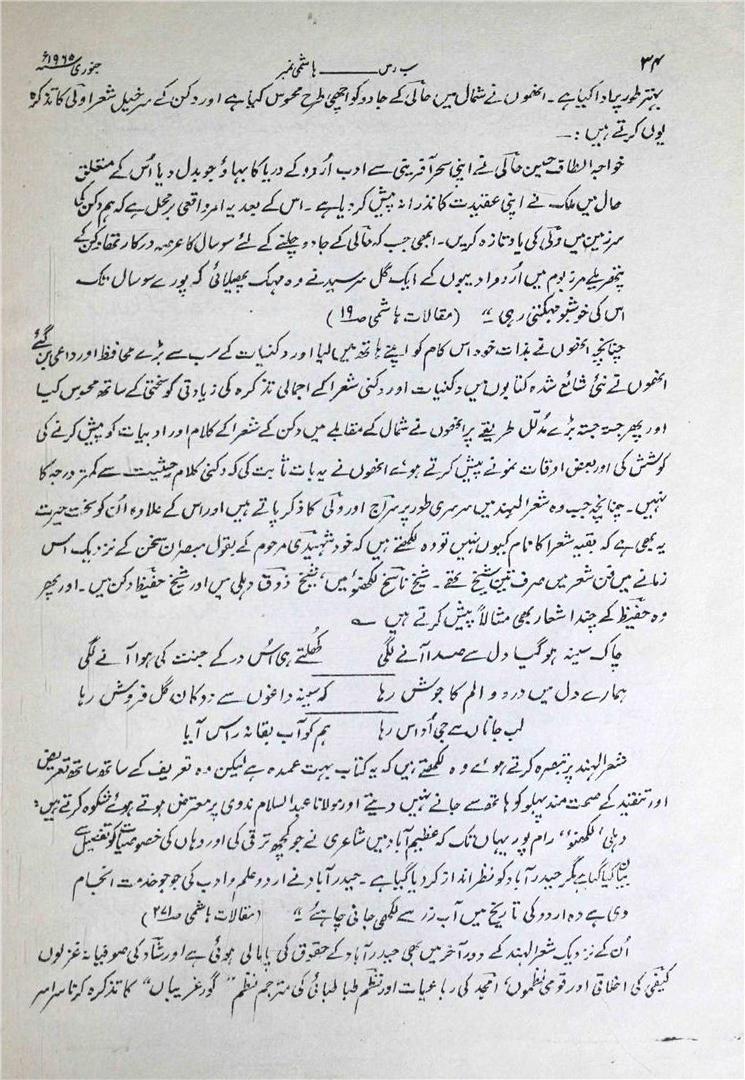 ۳۴ سب رس ـــــ ہاشمی نمبر جنوری ۱۹۶۵ء
بہتر طور پر ادا کیا ہے۔ انھوں نے شمال میں حالی کے جادو کو اچھی طرح محسوس کیا ہے اور دکن کے سرخیل شعرا ولی کا تذکرہ
یوں کرتے ہیں :۔
خواجہ الطاف حسین حالی نے اپنی سحر آفرینی سے ادب اُردو کے دریا کا بہاؤ جو بدل دیا اُس کے متعلق
حال میں ملک نے اپنی عقیدت کا نذرانہ پیش کر دیا ہے۔ اس کے بعد یہ امر واقعی برمحل ہے کہ ہم دکن کی
سرزمین میں ولی کی یاد تازہ کریں۔ ابھی جب کہ حالی کے جادو چلنے کے لئے سو سال کا عرصہ درکار تھا دکن کے
پتھریلے مرزبوم میں اُردو ادیبوں کے ایک گل سرسبد نے وہ مہک پھیلائی کہ پورے سو سال تک
اس کی خوشبو مہکتی رہی ؛؛ (مقالات ہاشمی صہ ۱۹)
چنانچہ انھوں نے بذات خود اس کام کو اپنے ہاتھ میں لیا اور دکنیات کے سب سے بڑے محافظ اور داعی بن گئے
انھوں نے نئی شائع شدہ کتابوں میں دکنیات اور دکنی شعرا کے اجمالی تذکرہ کی زیادتی کو سختی کے ساتھ محسوس کیا
اور پھر جستہ جستہ بڑے مدلّل طریقے پر انھوں نے شمال کے مقابلے میں دکن کے شعرا کے کلام اور ادبیات کو پیش کرنے کی
کوشش کی اور بعض اوقات نمونے پیش کرتے ہوئے انھوں نے یہ بات ثابت کی کہ دکنی کلام حیثیت سے کمتر درجہ کا
نہیں۔ چنانچہ جب وہ شعر الہند میں سرسری طور پر سراج اور ولی کا ذکر پاتے ہیں اور اس کے علاوہ اُن کو سخت حیرت
یہ بھی ہے کہ بقیہ شعرا کا نام کیوں نہیں تو وہ لکھتے ہیں کہ خود شہیدی مرحوم کے بقول مبصران سخن کے نزدیک اس
زمانے میں فن شعر میں صرف تین شیخ تھے۔ شیخ ناسخ لکھنؤ میں، شیخ ذوق دہلی میں اور شیخ حفیظ دکن میں۔ اور پھر
وہ حفیظ کے چند اشعار بھی مثالاً پیش کرتے ہیں ؎
چاک سینہ ہو گیا دل سے صدا آنے لگی کھُلتے ہی اُس در کے جنت کی ہوا آنے لگی
ہمارے دل میں درد و الم کا جوش رہا کہ سینہ داغوں سے دوکان گل فروش رہا
لب جاناں سے جی اُداس رہا ہم کو آب بقا نہ راس آیا
شعر الہند پر تبصرہ کرتے ہوئے وہ لکھتے ہیں کہ یہ کتاب بہت عمدہ ہے لیکن وہ تعریف کے ساتھ ساتھ تعریض
اور تنقید کے صحت مند پہلو کو ہاتھ سے جانے نہیں دیتے اور مولانا عبدالسلام ندوی پر معترض ہوتے ہوئے شکوہ کرتے ہیں :
دہلی، لکھنؤ، رام پور یہاں تک کہ عظیم آباد میں شاعری نے جو کچھ ترقی کی اور وہاں کی خصوصیات کو تفصیل سے
بیان کیا گیا ہے مگر حیدرآباد کو نظر انداز کر دیا گیا ہے۔ حیدرآباد نے اردو علم و ادب کی جو جو خدمت انجام
دی ہے وہ اردو کی تاریخ میں آب زر سے لکھی جانی چاہئے ؛؛ (مقالات ہاشمی صہ ۲۷۱)
اُن کے نزدیک شعر الہند کے دور آخر میں بھی حیدرآباد کے حقوق کی پامالی ہوئی ہے اور شاد کی صوفیانہ غزلوں
کیفی کی اخلاقی اور قومی نظموں، امجد کی رباعیات اور نظم طباطبائی کی مترجم نظم "گور غریباں" کا تذکرہ کرنا سراسر